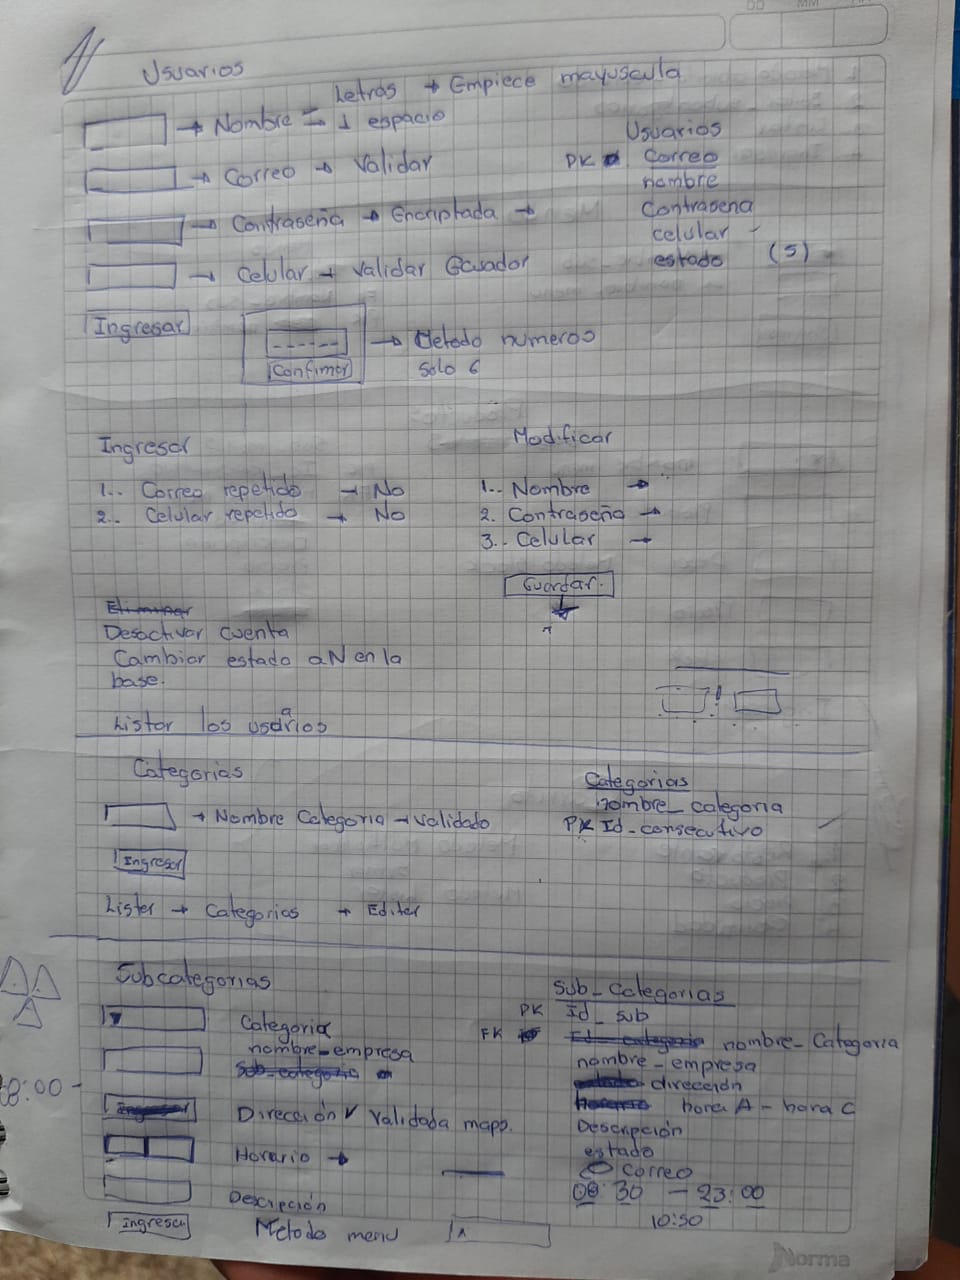 Usuarios
Letras → Empiece mayuscula
→ Nombre → 1 espacio
→ Correo → Validar
→ Contraseña → Encriptada →
→ Celular → Validar Ecuador
Usuarios
PK Correo
nombre
Contrasena
celular
estado (5)
Ingresar
------
Confirmar
→ Metodo numeros
Solo 6
Ingresar
1.. Correo repetido → No
2.. Celular repetido → No
Modificar
1.. Nombre →
2. Contraseña →
3.. Celular →
Guardar.
Eliminar
Desactivar cuenta
Cambiar estado a N en la
base.
Listar los usuarios
Categorias
→ Nombre Categoria → Validado
Ingresar
Listar → Categorias → Editar
Categorias
nombre_categoria
PK Id_consecutivo
Subcategorias
Categoria
nombre_empresa
Sub_categoria
Dirección Validada maps.
Horario →
Descripción
Ingresar
Metodo menu
8:00 -
Sub_Categorias
PK Id_sub
FK Id_categoria nombre_Categoria
nombre_empresa
dirección
Horario hora A - hora C
Descripción
estado
Correo
08:30 - 23:00
10:50
Norma